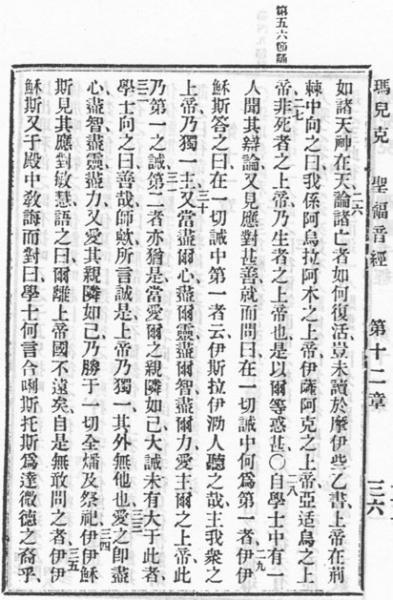 瑪兒克 聖福音經 第十二章 三六
如諸天神在天、論諸亡者如何復活、豈未讀於摩伊些乙書、上帝在荊
二六
棘中向之曰、我係阿烏拉阿木之上帝、伊薩阿克之上帝、亞适烏之上
二七
帝、非死者之上帝、乃生者之上帝也、是以爾等惑甚、〇自學士中有一
二八
人聞其辯論、又見應對甚善、就而問曰、在一切誡中何爲第一者、伊伊
二九
穌斯答之曰、在一切誡中第一者云、伊斯拉伊泐人聽之哉、主我衆之
上帝、乃獨一主、又當盡爾心盡爾靈盡爾智盡爾力、愛主爾之上帝、此
三十
乃第一之誡、第二者亦猶是、當愛爾之親隣如己、大誡未有大于此者、
三一
學士向之曰、善哉師歟、所言誠是、上帝乃獨一、其外無他也、愛之卽盡
三二 三三
心盡智盡靈盡力、又愛其親隣如己、乃勝于一切全燔及祭祀、伊伊穌
三四
斯見其應對敏慧、語之曰、爾離上帝國不遠矣、自是無敢問之者、伊伊
三五
穌斯又于殿中敎誨而對曰、學士何言合唎斯托斯爲達微德之裔乎、